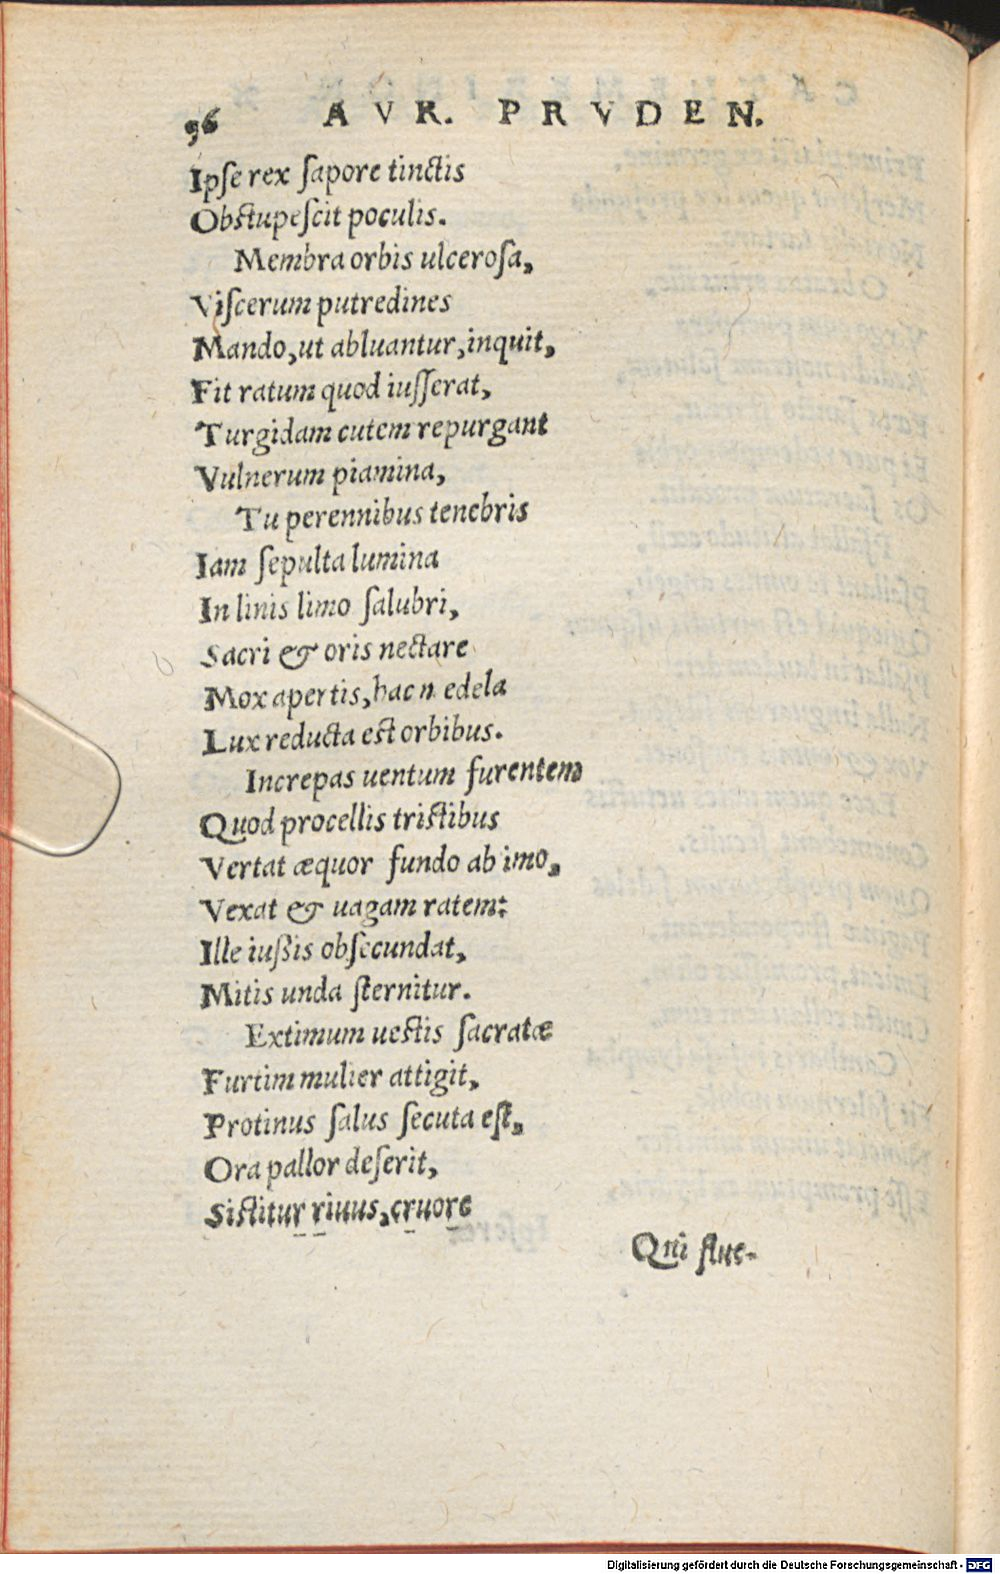 96 AVR. PRVDEN.
Ipse rex sapore tinctis
Obstupescit poculis.
Membra orbis ulcerosa,
Viscerum putredines
Mando, ut abluantur, inquit,
Fit ratum quod iusserat,
Turgidam cutem repurgant
Vulnerum piamina,
Tu perennibus tenebris
Iam sepulta lumina
In linis limo salubri,
Sacri & oris nectare
Mox apertis, hac n edela
Lux reducta est orbibus.
Increpas uentum furentem
Quod procellis tristibus
Vertat æquor fundo ab imo,
Vexat & uagam ratem:
Ille iußis obsecundat,
Mitis unda sternitur.
Extimum uestis sacratæ
Furtim mulier attigit,
Protinus salus secuta est,
Ora pallor deserit,
Sistitur riuus, cruore
Qui flue-
Digitalisierung gefördert durch die Deutsche Forschungsgemeinschaft - DFG